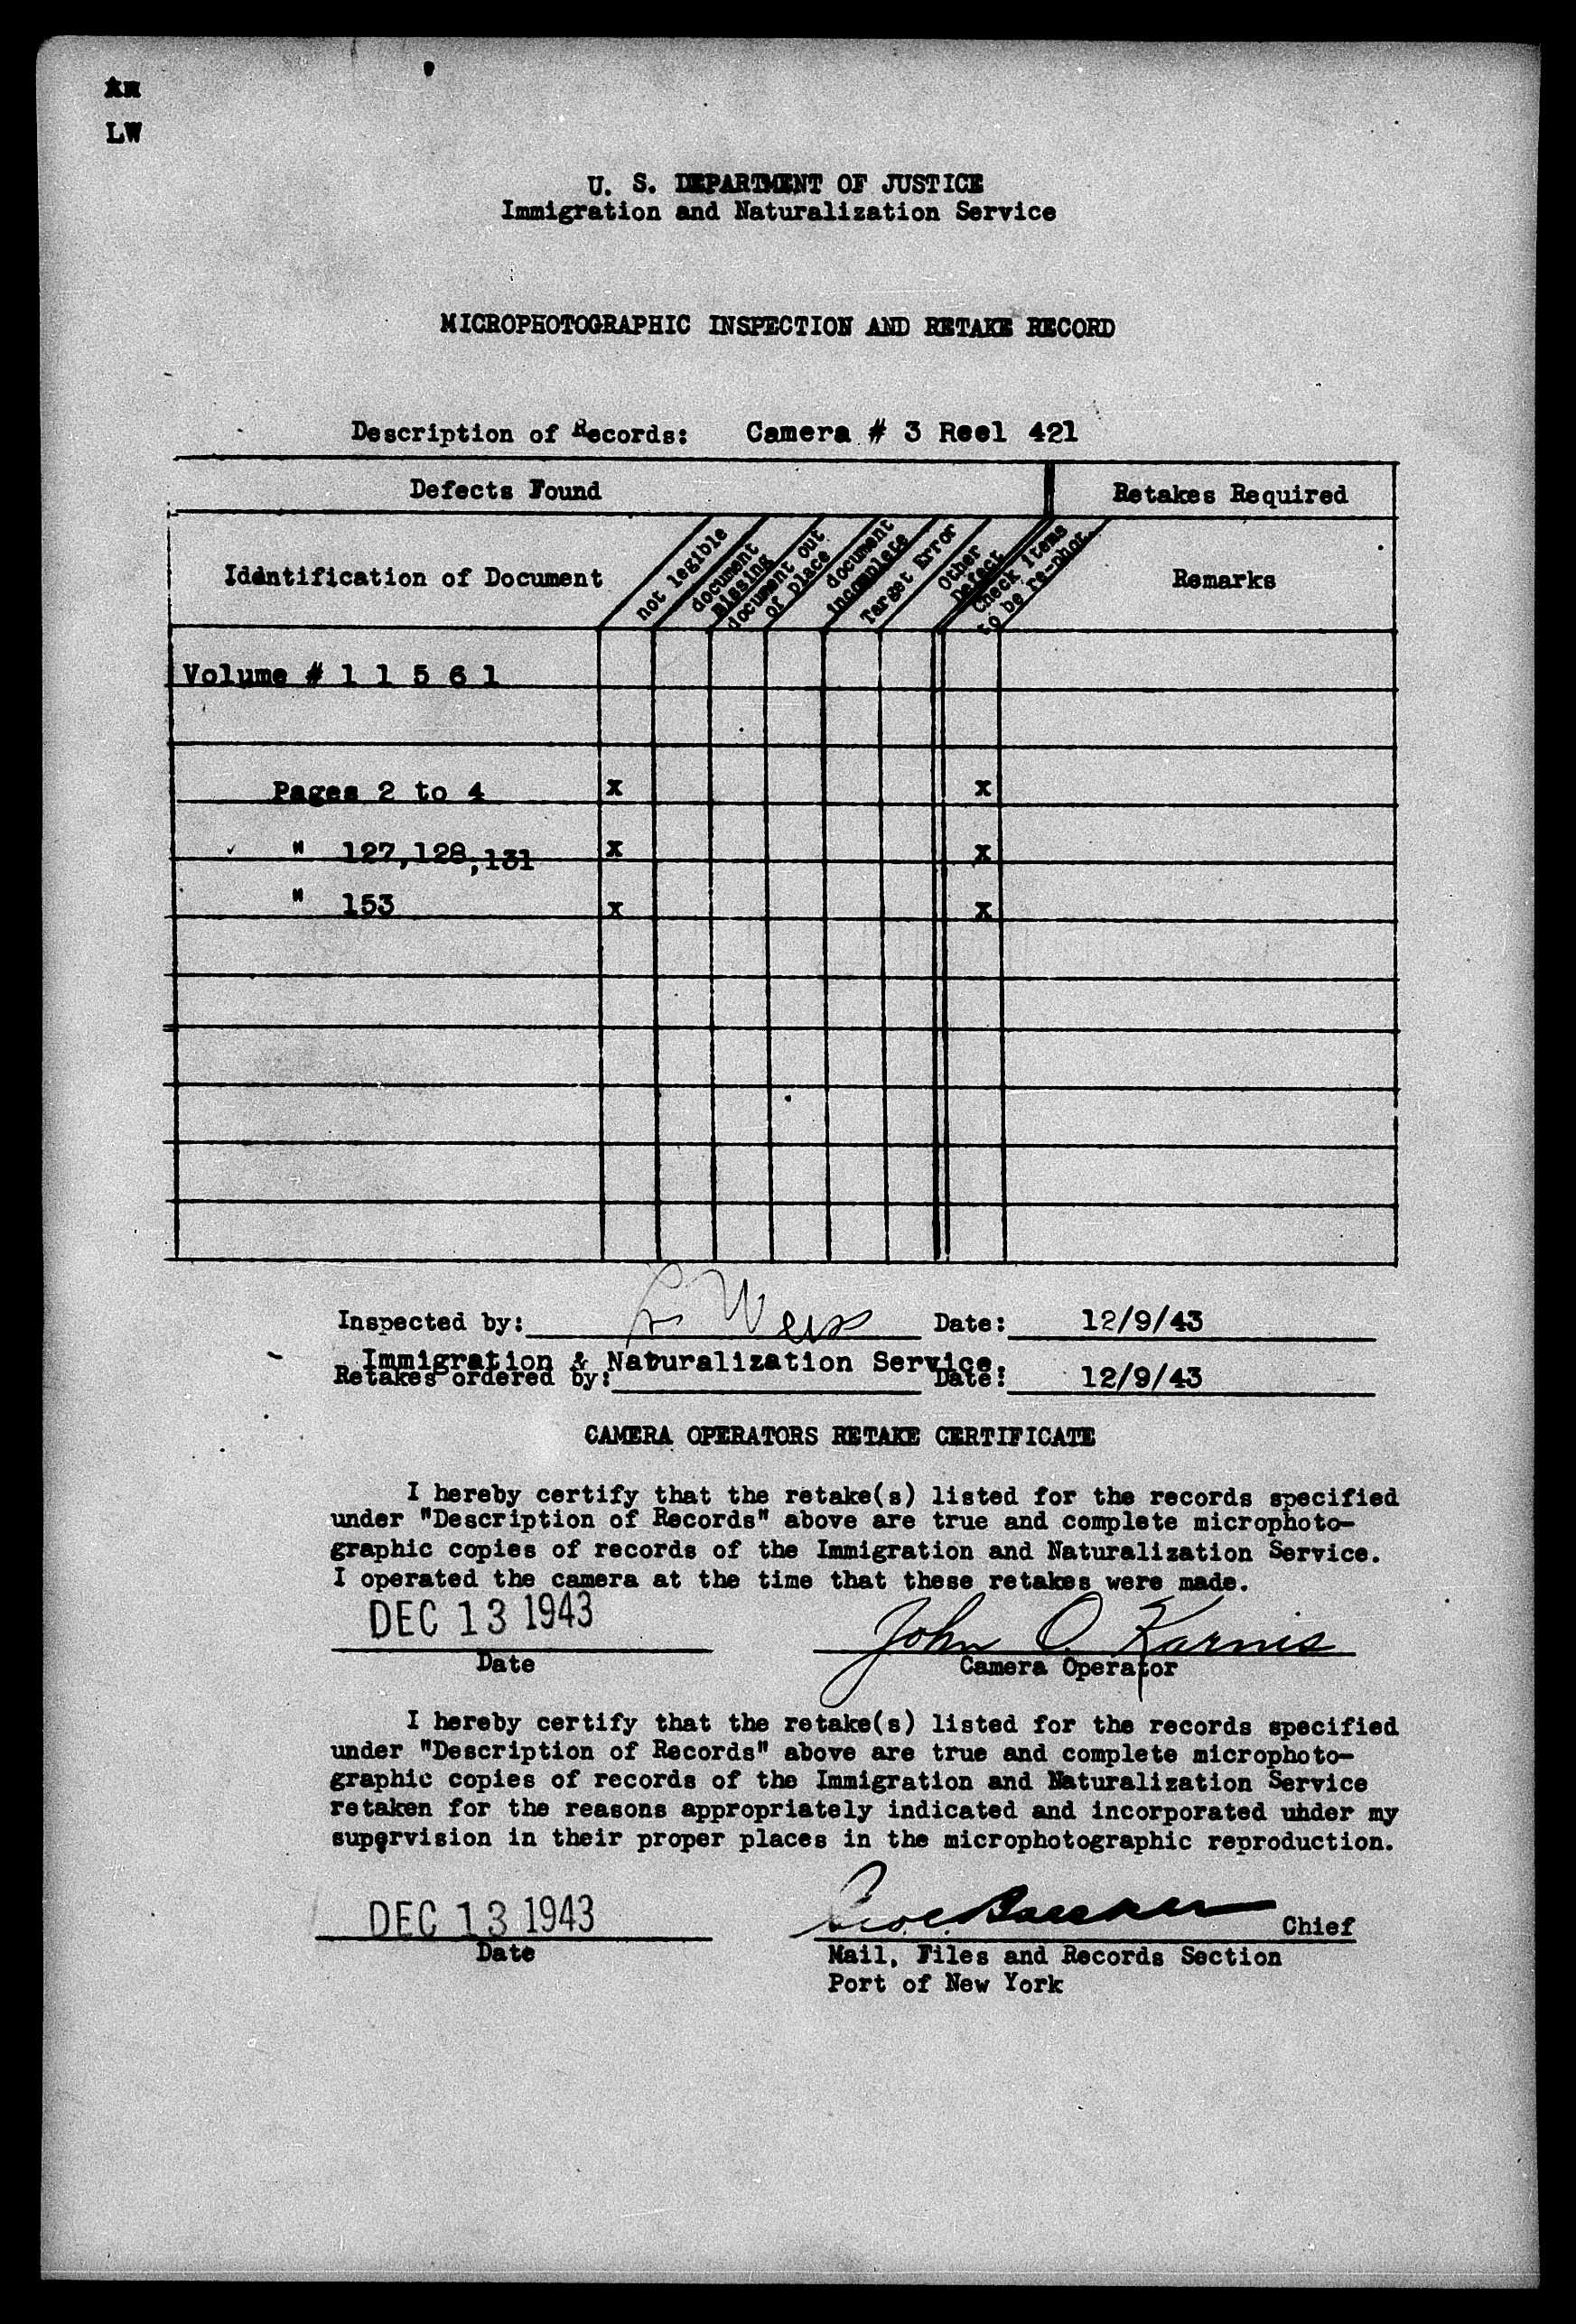 LW
U. S. DEPARTMENT OF JUSTICE
Immigration and Naturalization Service
MICROPHOTOGRAPHIC INSPECTION AND RETAKE RECORD
Description of Records: Camera # 3 Reel 421
Defects Found
Retakes Required
Identification of Document
not legible
document missing
document out of place
document incomplete
Target Error
Other Defect
Check items to be re-phot.
Remarks
Volume # 1 1 5 6 1
Pages 2 to 4 x x
" 127,128,131 x x
" 153 x x
Inspected by: L. Weiss Date: 12/9/43
Immigration & Naturalization Service.
Retakes ordered by: Date: 12/9/43
CAMERA OPERATORS RETAKE CERTIFICATE
I hereby certify that the retake(s) listed for the records specified
under "Description of Records" above are true and complete microphoto-
graphic copies of records of the Immigration and Naturalization Service.
I operated the camera at the time that these retakes were made.
DEC 13 1943 John O. Karnis
Date Camera Operator
I hereby certify that the retake(s) listed for the records specified
under "Description of Records" above are true and complete microphoto-
graphic copies of records of the Immigration and Naturalization Service
retaken for the reasons appropriately indicated and incorporated uhder my
supervision in their proper places in the microphotographic reproduction.
DEC 13 1943 Chief
Date Mail, Files and Records Section
Port of New York